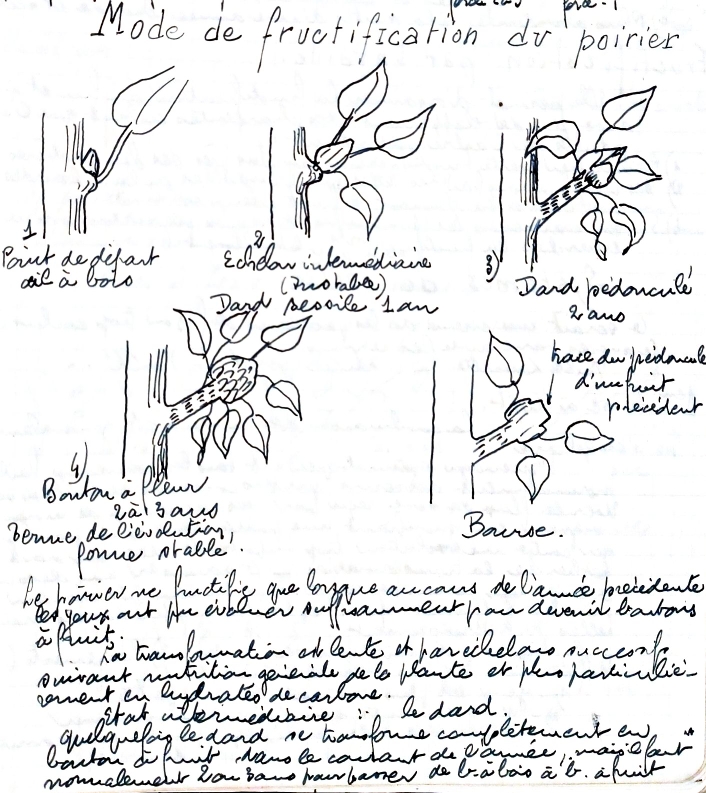 Mode de fructification du poirier
1
Point de départ
œil à bois
2
Echelon intermédiaire
(instable)
Dard sessile 1 an
3)
Dard pédonculé
2 ans
4)
Bouton à fleur
2 à 3 ans
Terme de l'évolution,
forme stable.
trace du pédoncule
d'un fruit
précédent
Bourse.
Le poirier ne fructifie que lorsque au cours de l'année précédente
les yeux ont pu évoluer suffisamment pour devenir boutons
à fruit.
La transformation est lente et par échelons successifs
suivant nutrition générale de la plante et plus particuliè-
rement en hydrates de carbone.
Etat intermédiaire : le dard.
quelquefois le dard se transforme complètement en
bouton à fruit dans le courant de l'année, mais il faut
normalement 2 ou 3 ans pour passer de b. à bois à b. à fruit